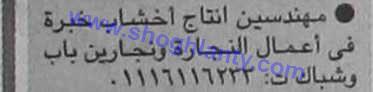 ● مهندسين انتاج أخشاب خبرة
فى أعمال النجارة ونجارين باب
وشباك ت: ٠١١١٦١١٦٢٣٣
www.shoghlanty.com